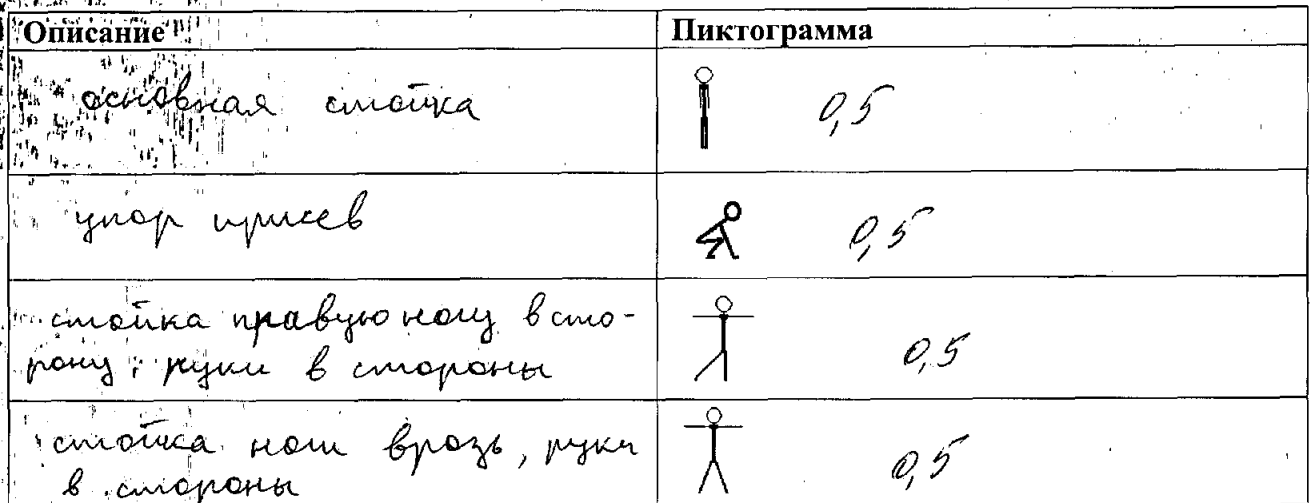 Описание Пиктограмма
основная стойка 0,5
упор присев 0,5
стойка правую ногу в сто-
рону, руки в стороны 0,5
стойка ноги врозь, руки
в стороны 0,5